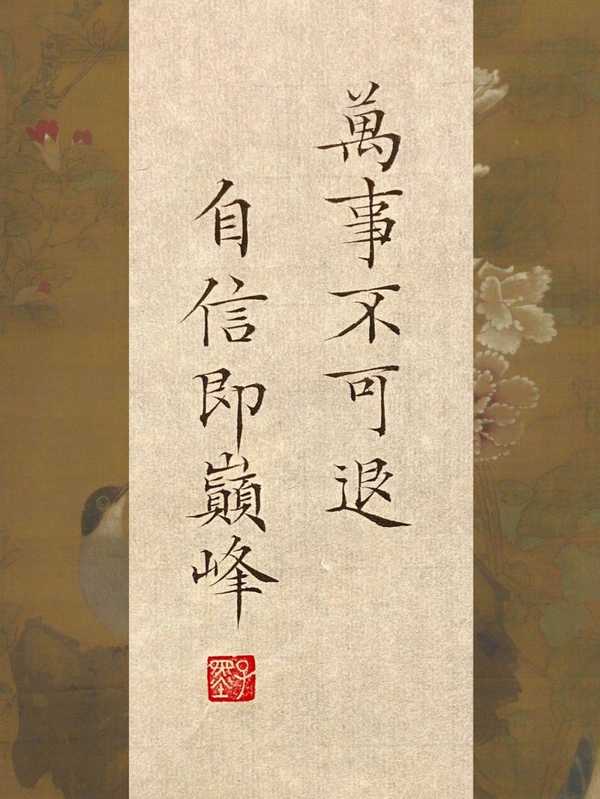 萬事不可退
自信即巔峰